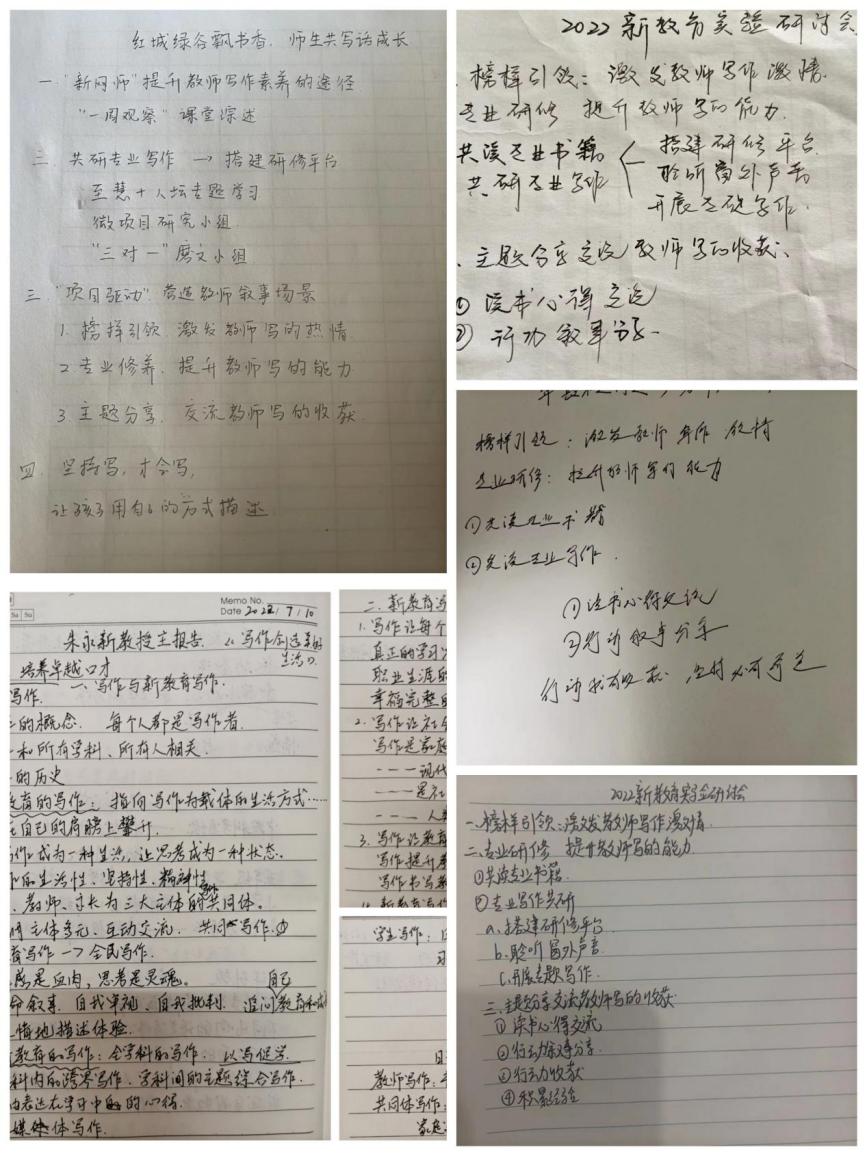 红城绿谷飘书香，师生共写话成长
一."新网师"提升教师写作素养的途径
"一周观察" 课堂综述
三. 共研专业写作 → 搭建研修平台
至慧十人坛专题学习
微项目研究小组
"三对一"磨文小组
三."项目驱动"营造教师叙事场景
1. 榜样引领. 激发教师写的热情
2 专业修养. 提升教师写的能力
3. 主题分享. 交流教师写的收获
四. 坚持写，才会写，
让孩子用自己的方式描述
2022新教育实验研讨会
榜样引领：激发教师写作激情
专业研修 提升教师写的能力.
共读专业书籍
共研专业写作
搭建研修平台
聆听窗外声音
开展主题写作.
、主题分享交流教师写的收获、
① 读书心得交流
② 行动叙事分享
榜样引领：激发教师写作激情
专业研修：提升教师写的能力
①共读专业书籍
②共读专业写作.
①读书心得交流
②行动叙事分享
行动就有收获，坚持必有奇迹
Memo No.
Date 2022/7/10
朱永新教授主报告.《写作创造美好
生活》
培养卓越口才
写作. 一.写作与新教育写作.
的概念. 每个人都是写作者.
和所有学科、所有人相关.
的历史
教育的写作：指向写作为载体的生活方式……
在自己的肩膀上攀升.
作成为一种生活，让思考成为一种状态.
的生活性、坚持性、精神性
、教师、家长为三大主体的共同体.
主体多元、互动交流. 共同写作.
育写作→全民写作.
感是血肉，思考是灵魂.
命叙事. 自我审视、自我批判. 追问自己教育和
情地描述体验.
教育的写作：全学科的写作. 以写促学.
科内的跨界写作. 学科间的主题综合写作.
表达在学习中的心得.
媒体写作.
二. 新教育写
1. 写作让每个
真正的学习
职业生涯的
幸福完整的
2. 写作让社会
写作是家庭
---现代
---是社
---人
3. 写作让教育
写作提升
写作书写
学生写作：
教师写作：
共同体写作：
家庭
2022新教育实验研讨会
一.榜样引领：激发教师写作激情
二.专业研修 提升教师写的能力
①共读专业书籍
②专业写作共研
a.搭建研修平台
b.聆听窗外声音
c.开展专题写作.
三.主题分享交流教师写的收获
①读书心得交流
②行动叙事分享
③行动收获
④积累经验